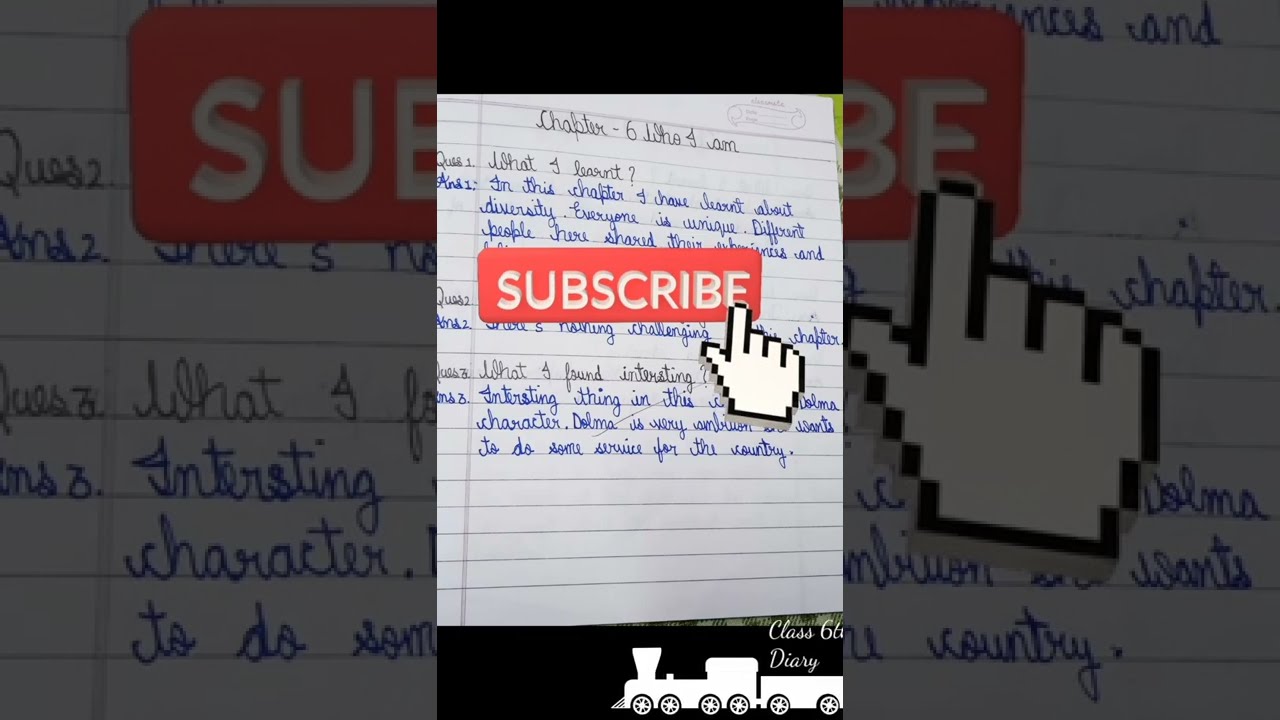 Chapter - 6 Who I am
Ques 1. What I learnt?
Ans 1. In this chapter I have learnt about
diversity. Everyone is unique Different
people here shared their experiences and
SUBSCRIBE
Ques 2
Ans 2. There's nothing challenging this chapter.
Ques 3. What I found intersting?
Ans 3. Intersting thing in this Dolma
character. Dolma is very wants
to do some service for the country.
Class 6th
Diary